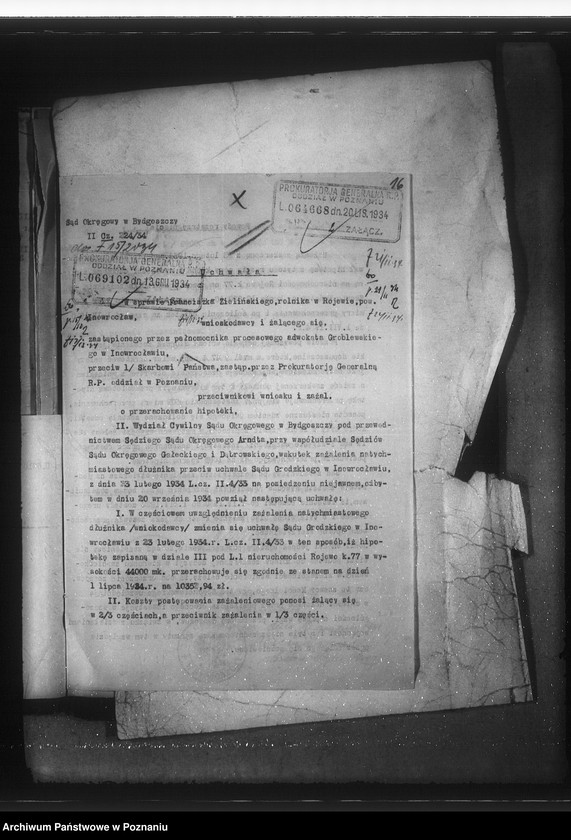 16
PROKURATORJA GENERALNA R.P.
ODDZIAŁ W POZNANIU
L.064668 dn.20LIS.1934
ZAŁĄCZ.
Sąd Okręgowy w Bydgoszczy
II Cz. 224/34
PROKURATORJA GENERALNA R.P.
ODDZIAŁ W POZNANIU
L.069102 dn.13.GRU.1934
Uchwała
W sprawie Franciszka Zielińskiego,rolnika w Rojewie,pow.
Inowrocław,
wnioskodawcy i żalącego się,
zastąpionego przez pełnomocnika procesowego adwokata Groblewskie-
go w Inowrocławiu,
przeciw 1/ Skarbowi Państwa,zastąp.przez Prokuratorję Generalną
R.P. oddział w Poznaniu,
przeciwnikowi wniosku i zażal.
o przerachowanie hipoteki,
II. Wydział Cywilny Sądu Okręgowego w Bydgoszczy pod przewod-
nictwem Sędziego Sądu Okręgowego Arndta,przy współudziale Sędziów
Sądu Okręgowego Gałeckiego i Dutrowskiego,wskutek zażalenia natych-
miastowego dłużnika przeciw uchwale Sądu Grodzkiego w Inowrocławiu,
z dnia 23 lutego 1934 L.cz. II.4/33 na posiedzeniu niejawnem,odby-
tem w dniu 20 września 1934 powziął następującą uchwałę:
I. W częściowem uwzględnieniu zażalenia natychmiastowego
dłużnika /wnioskodawcy/ zmienia się uchwałę Sądu Grodzkiego w Ino-
wrocławiu z 23 lutego 1934.r. L.cz. II.4/33 w ten sposób,iż hipo-
tekę zapisaną w dziale III pod L.1 nieruchomości Rojewo k.77 w wy-
sokości 44000 mk. przerachowuje się zgodnie ze stanem na dzień
1 lipca 1934.r. na zł.
II. Koszty postępowania zażaleniowego ponosi żalący się
w 2/3 częściach,a przeciwnik zażalenia w 1/3 części.
Archiwum Państwowe w Poznaniu